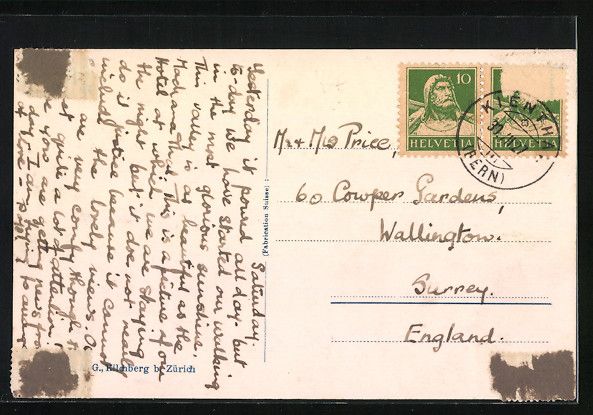 Saturday.
Yesterday it poured all day. but
to-day we have started our walking
in the most glorious sunshine.
This valley is as beautiful as the
This is a picture of our
Hotel at which we are staying
the night but it does not really
do it justice because it cannot
include the lovely views.
are very comfy though &
quite a lot of
you are getting
day. I am
Mr & Mrs Price,
60 Cowper Gardens,
Wallington.
Surrey.
England.
10
HELVETIA
HELVETIA
KIENTHAL
(BERN)
(Fabrication Suisse)
G., Kilchberg b. Zürich